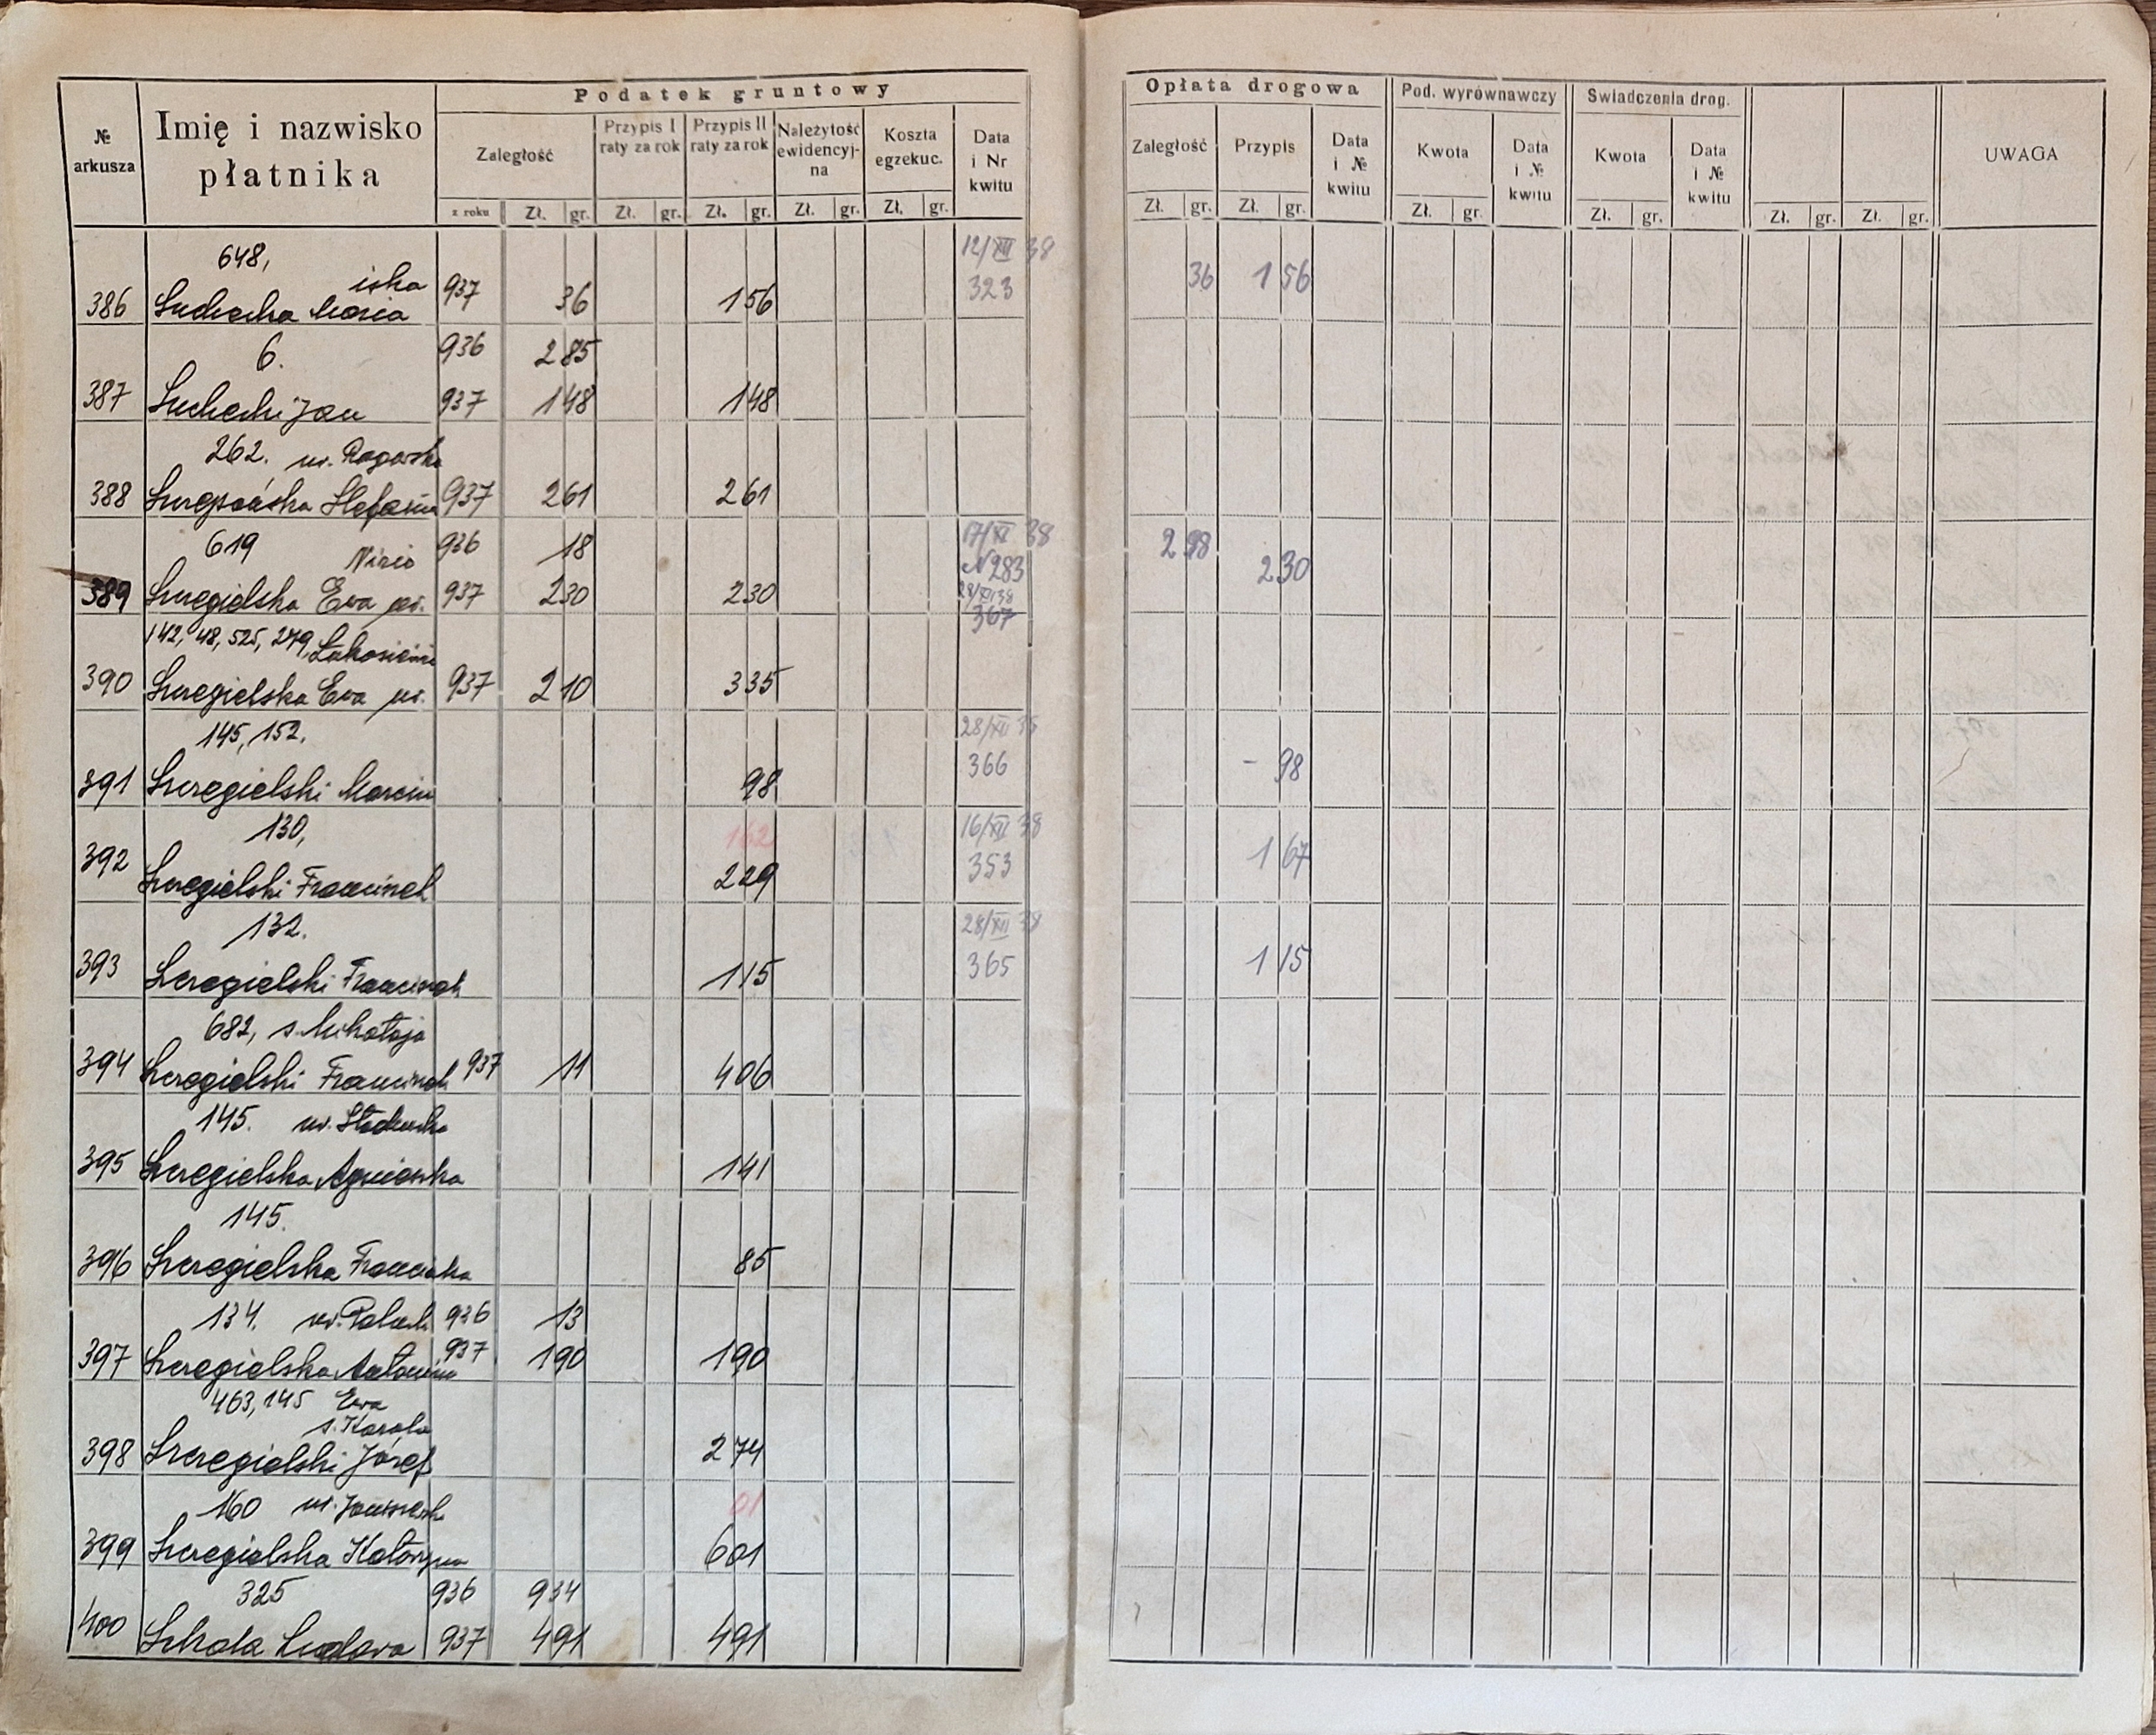 Podatek gruntowy
№ arkusza
Imię i nazwisko płatnika
Zaległość
Przypis I raty za rok
Przypis II raty za rok
Należytość ewidencyj-na
Koszta egzekuc.
Data i Nr kwitu
z roku Zł. gr. Zł. gr. Zł. gr. Zł. gr. Zł. gr.
Opłata drogowa Pod. wyrównawczy Swiadczenia drog.
Zaległość Przypis Data i № kwitu Kwota Data i № kwitu Kwota Data i № kwitu UWAGA
Zł. gr. Zł. gr. Zł. gr. Zł. gr. Zł. gr. Zł. gr.
648, 12/XII 38
386 Suchecka Maria 937 36 156 323 36 1 56
6. 936 2 85
387 Suchecki Jan 937 1 48 1 48
262.
388 Stefania 937 2 61 2 61
619 936 18 17/XI 38 2 98
№ 283 2 30
389 Szregielska Ewa 937 2 30 2 30 28/XII 38
367
142, 48, 525, 279,
390 Szregielska Ewa 937 2 10 3 35
145, 152. 28/XII
391 Szregielski Marcin 98 366 - 98
130, 162 16/XII 38
392 Szregielski Franciszek 2 29 353 1 67
132. 28/XII 38
393 Szregielski Franciszek 1 15 365 1 15
682, s. Mikołaja
394 Szregielski Franciszek 937 11 4 06
145.
395 Szregielska Agnieszka 1 41
145.
396 Szregielska Franciszka 85
134. 936 13
397 Szregielska Antonina 937 1 90 1 90
463, 145 Ewa
s. Karola
398 Szregielski Józef 2 74
160 01
399 Szregielska Katarzyna 6 01
325 936 9 34
400 Szkoła 937 4 91 4 91